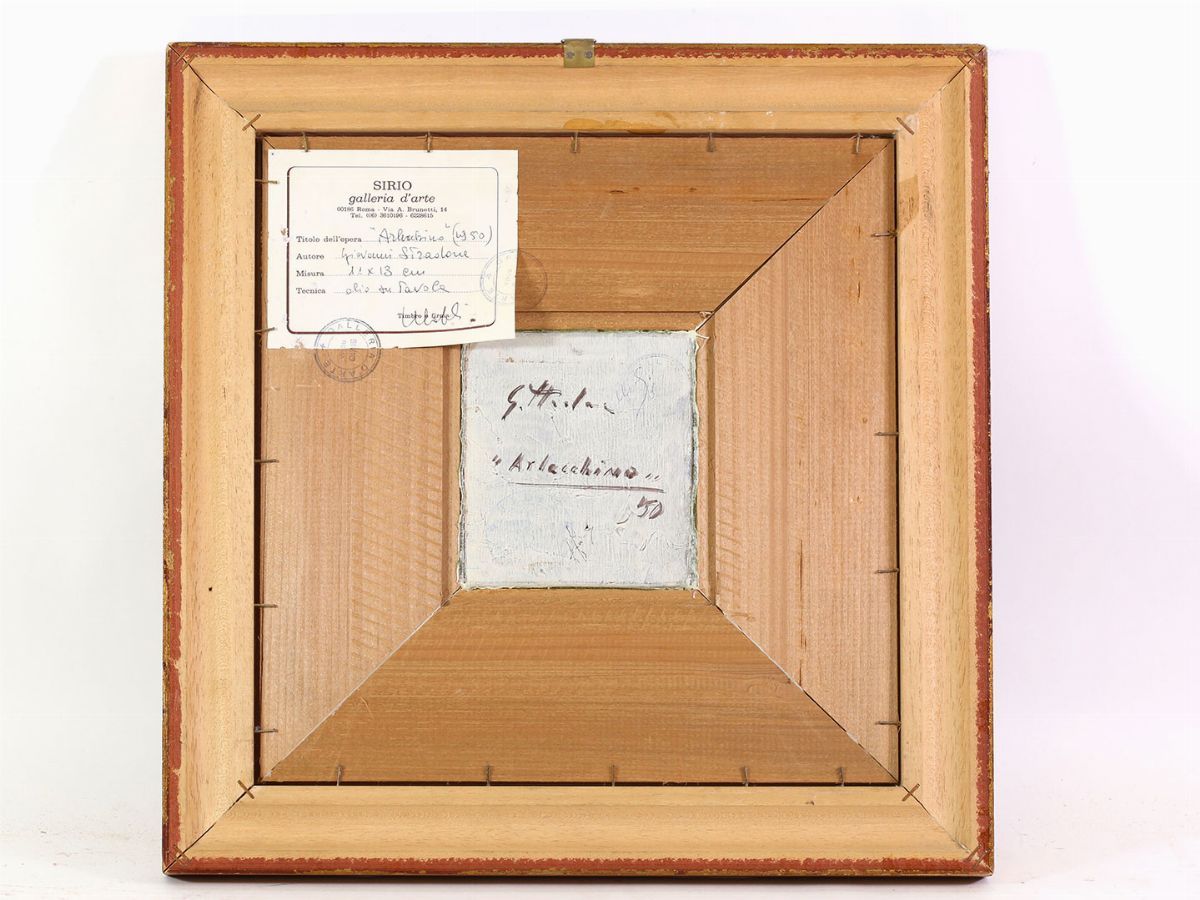 SIRIO
galleria d'arte
00186 Roma - Via A. Brunetti, 14
Tel. (06) 3610196 - 6228615
Titolo dell'opera "Arlecchino" (1950)
Autore Giovanni Stradone
Misura 11 x 13 cm
Tecnica olio su tavola
Timbro e firma
GALLERIA D'ARTE
"Arlecchino"
50